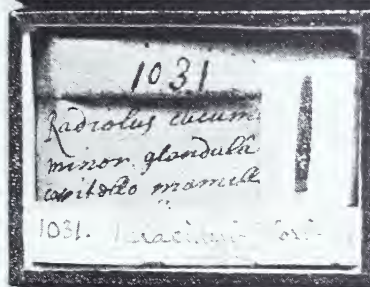 1031
Radiolus cucum
minor glandulâ
capitello mamill
1031.